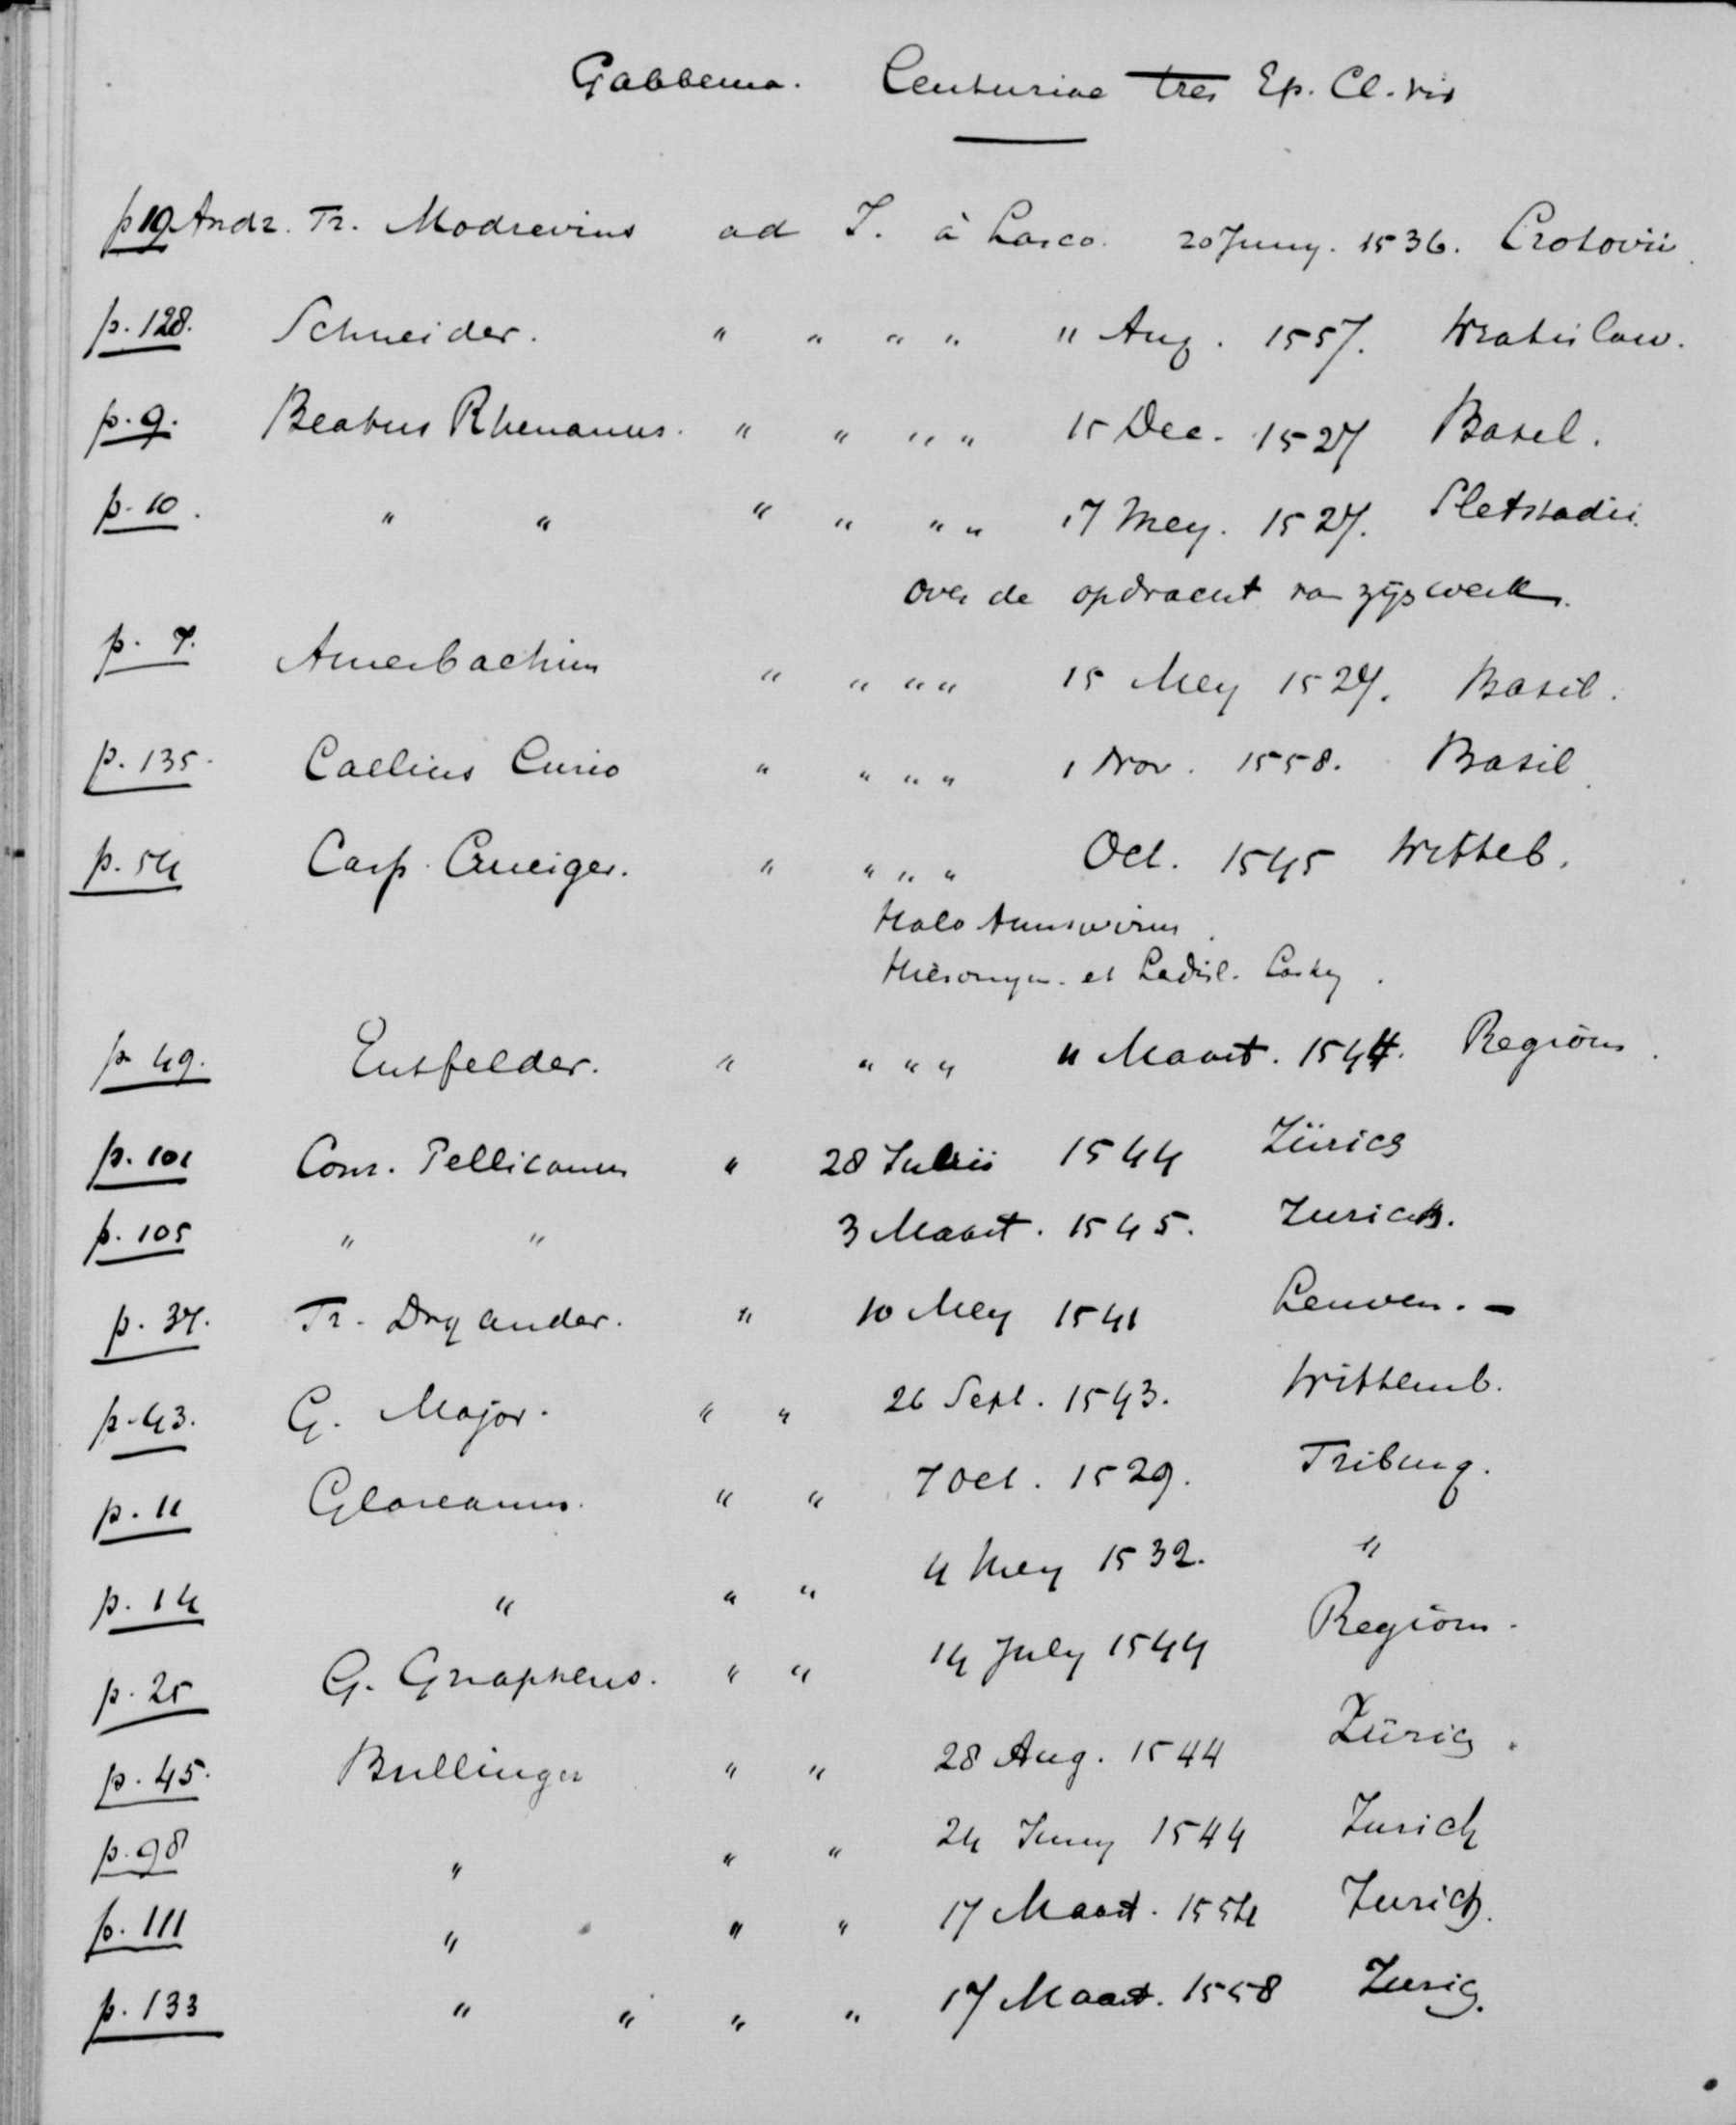 Gabbema. Centuriae tres Ep. Cl. vir
p 19 Andr. Fr. Modrevius ad J. à Lasco. 20 Juny. 1536. Crotovii.
p. 128. Schneider. " " " " 11 Aug. 1557. Wratislaw.
p. 9. Beatus Rhenanus. " " " " 15 Dec. 1527 Basel.
p. 10. " " " " " " 17 Mey. 1527. Sletstadii.
over de opdracht van zijs werk.
p. 7. Amerbachius " " " " 15 Mey 1527. Basil.
p. 135. Caelius Curio " " " " 1 Nov. 1558. Basil.
p. 54 Casp. Cruciger. " " " " Oct. 1545 Witteb.
Halo
Hieronym. et Ladisl. Lasky.
p 49. Entfelder. " " " " 11 Maart. 1544. Regiom.
p. 101 Conr. Pellicanus " 28 Julii 1544 Zürich
p. 105 " " 3 Maart. 1545. Zurich.
p. 37. Fr. Dryander. " 10 Mey 1541 Leuven. -
p. 43. G. Major. " " 26 Sept. 1543. Wittemb.
p. 11 Glareanus. " " 7 Oct. 1529. Friburg.
p. 14 " " " 4 Mey 1532. "
p. 25 G. Gnapheus. " " 14 July 1544 Regiom.
p. 45. Bullinger " " 28 Aug. 1544 Zürich.
p. 98 " " " 24 Juny 1544 Zurich
p. 111 " " " 17 Maart. 1554 Zurich.
p. 133 " " " " 17 Maart. 1558 Zurich.